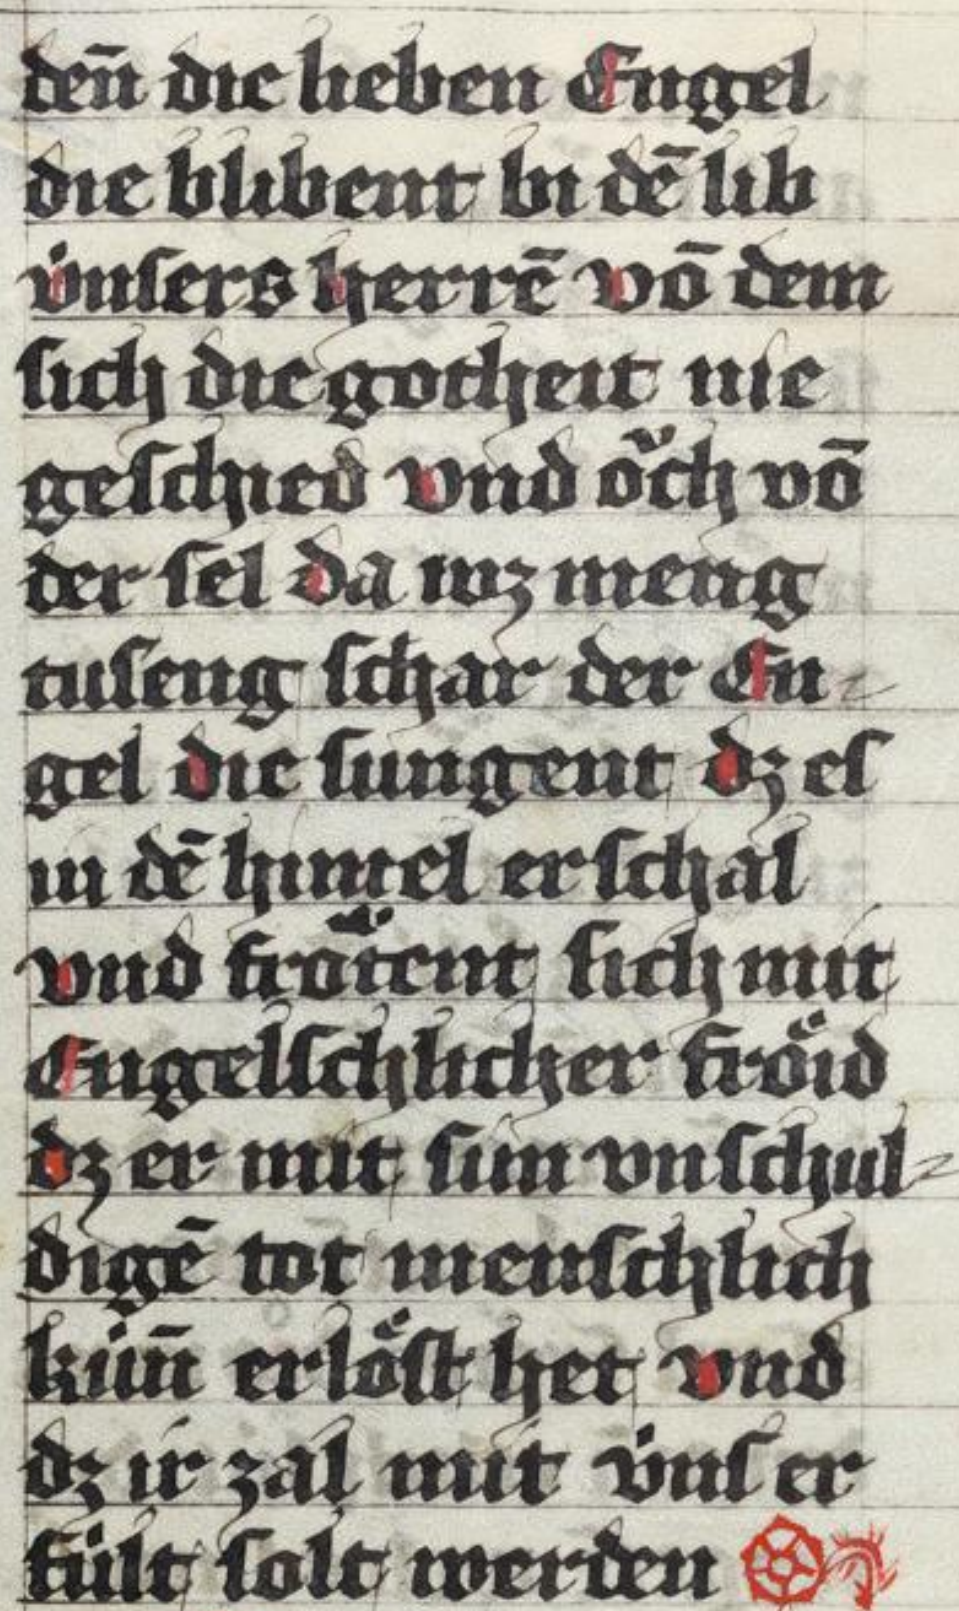 den̄ die lieben Engel
die blibent bi dē lib
v̇nsers herrē vō dem
sich die gotheit nie
geschied vnd oͮch vō
der sel da wz meng
tuseng schar der En-
gel die sungent dz es
in dē himel erschal
vnd froͮ̈tent sich mit
Engelschlicher froͤid
dz er mit sim vnschul-
digē tot menschlich
kün̄ erloͤst het vnd
dz ir zal mit v̇ns er
fült solt werden